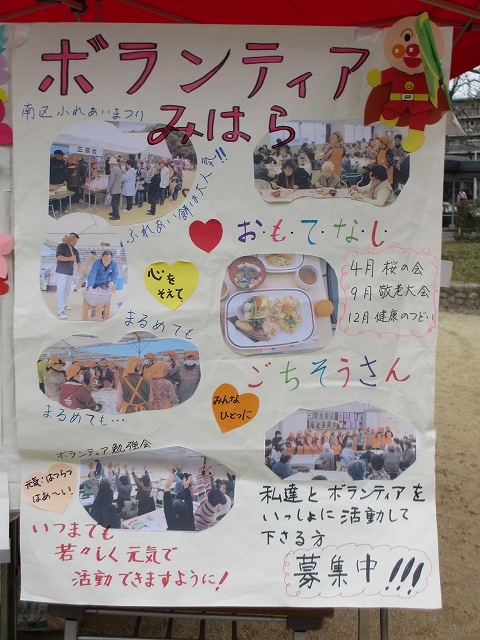 ボランティア
みはら
南区ふれあいまつり
ふれあい餅は大人気!!
お・も・て・な・し
4月 桜の会
9月 敬老大会
12月 健康のつどい
心を
そえて
まるめても
まるめても…
ごちそうさん
みんな
ひとつに
ボランティア勉強会
元気な人はつらつ
はあ〜い!
いつまでも
若々しく元気で
活動できますように!
私達とボランティアを
いっしょに活動して
下さる方
募集中!!!